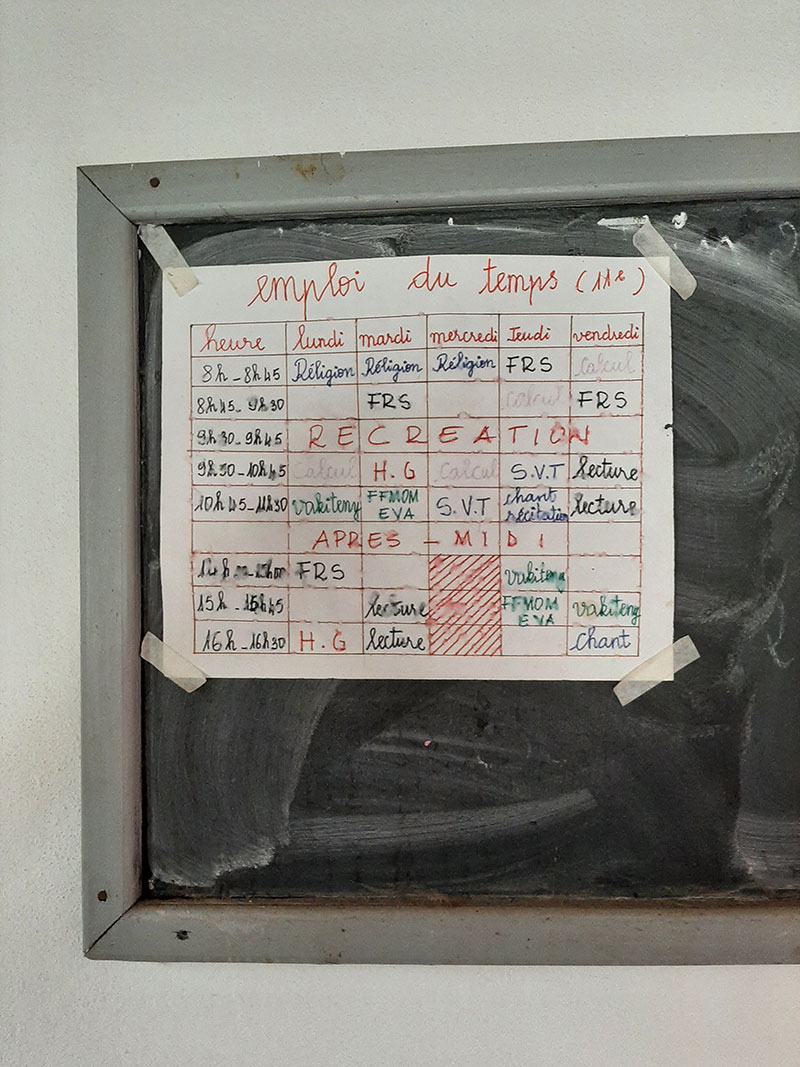 emploi du temps (11e)
heure lundi mardi mercredi Jeudi vendredi
8h_8h45 Réligion Réligion Réligion FRS Calcul
8h45_9h30 FRS calcul FRS
9h30_9h45 RECREATION
9h30_10h45 Calcul H.G Calcul S.V.T lecture
10h45_11h30 vakiteny FFMOM EVA S.V.T chant récitation lecture
APRES - MIDI
FRS vakiteny
15h_15h45 lecture FFMOM EVA vakiteny
16h_16h30 H.G lecture chant